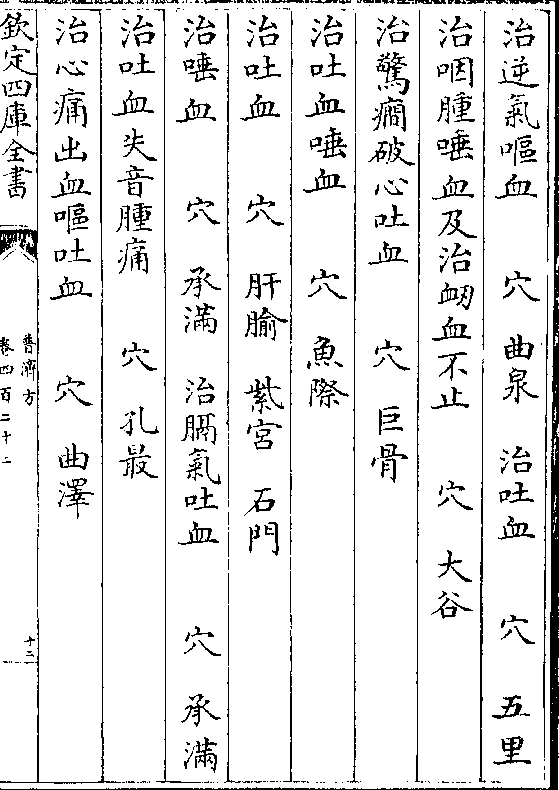 治逆氣嘔血　穴　曲泉　治吐血　穴　五里
治咽腫唾血及治衂血不止　穴　大谷
治驚癇破心吐血　穴　巨骨
治吐血唾血　穴　魚際
治吐血　穴　肝腧　紫宮　石門
治唾血　穴　承滿　治膈氣吐血　穴　承滿
治吐血失音腫痛　穴　孔最
治心痛出血嘔吐血　穴　曲澤
欽定四庫全書
普濟方
卷四百二十二
十二